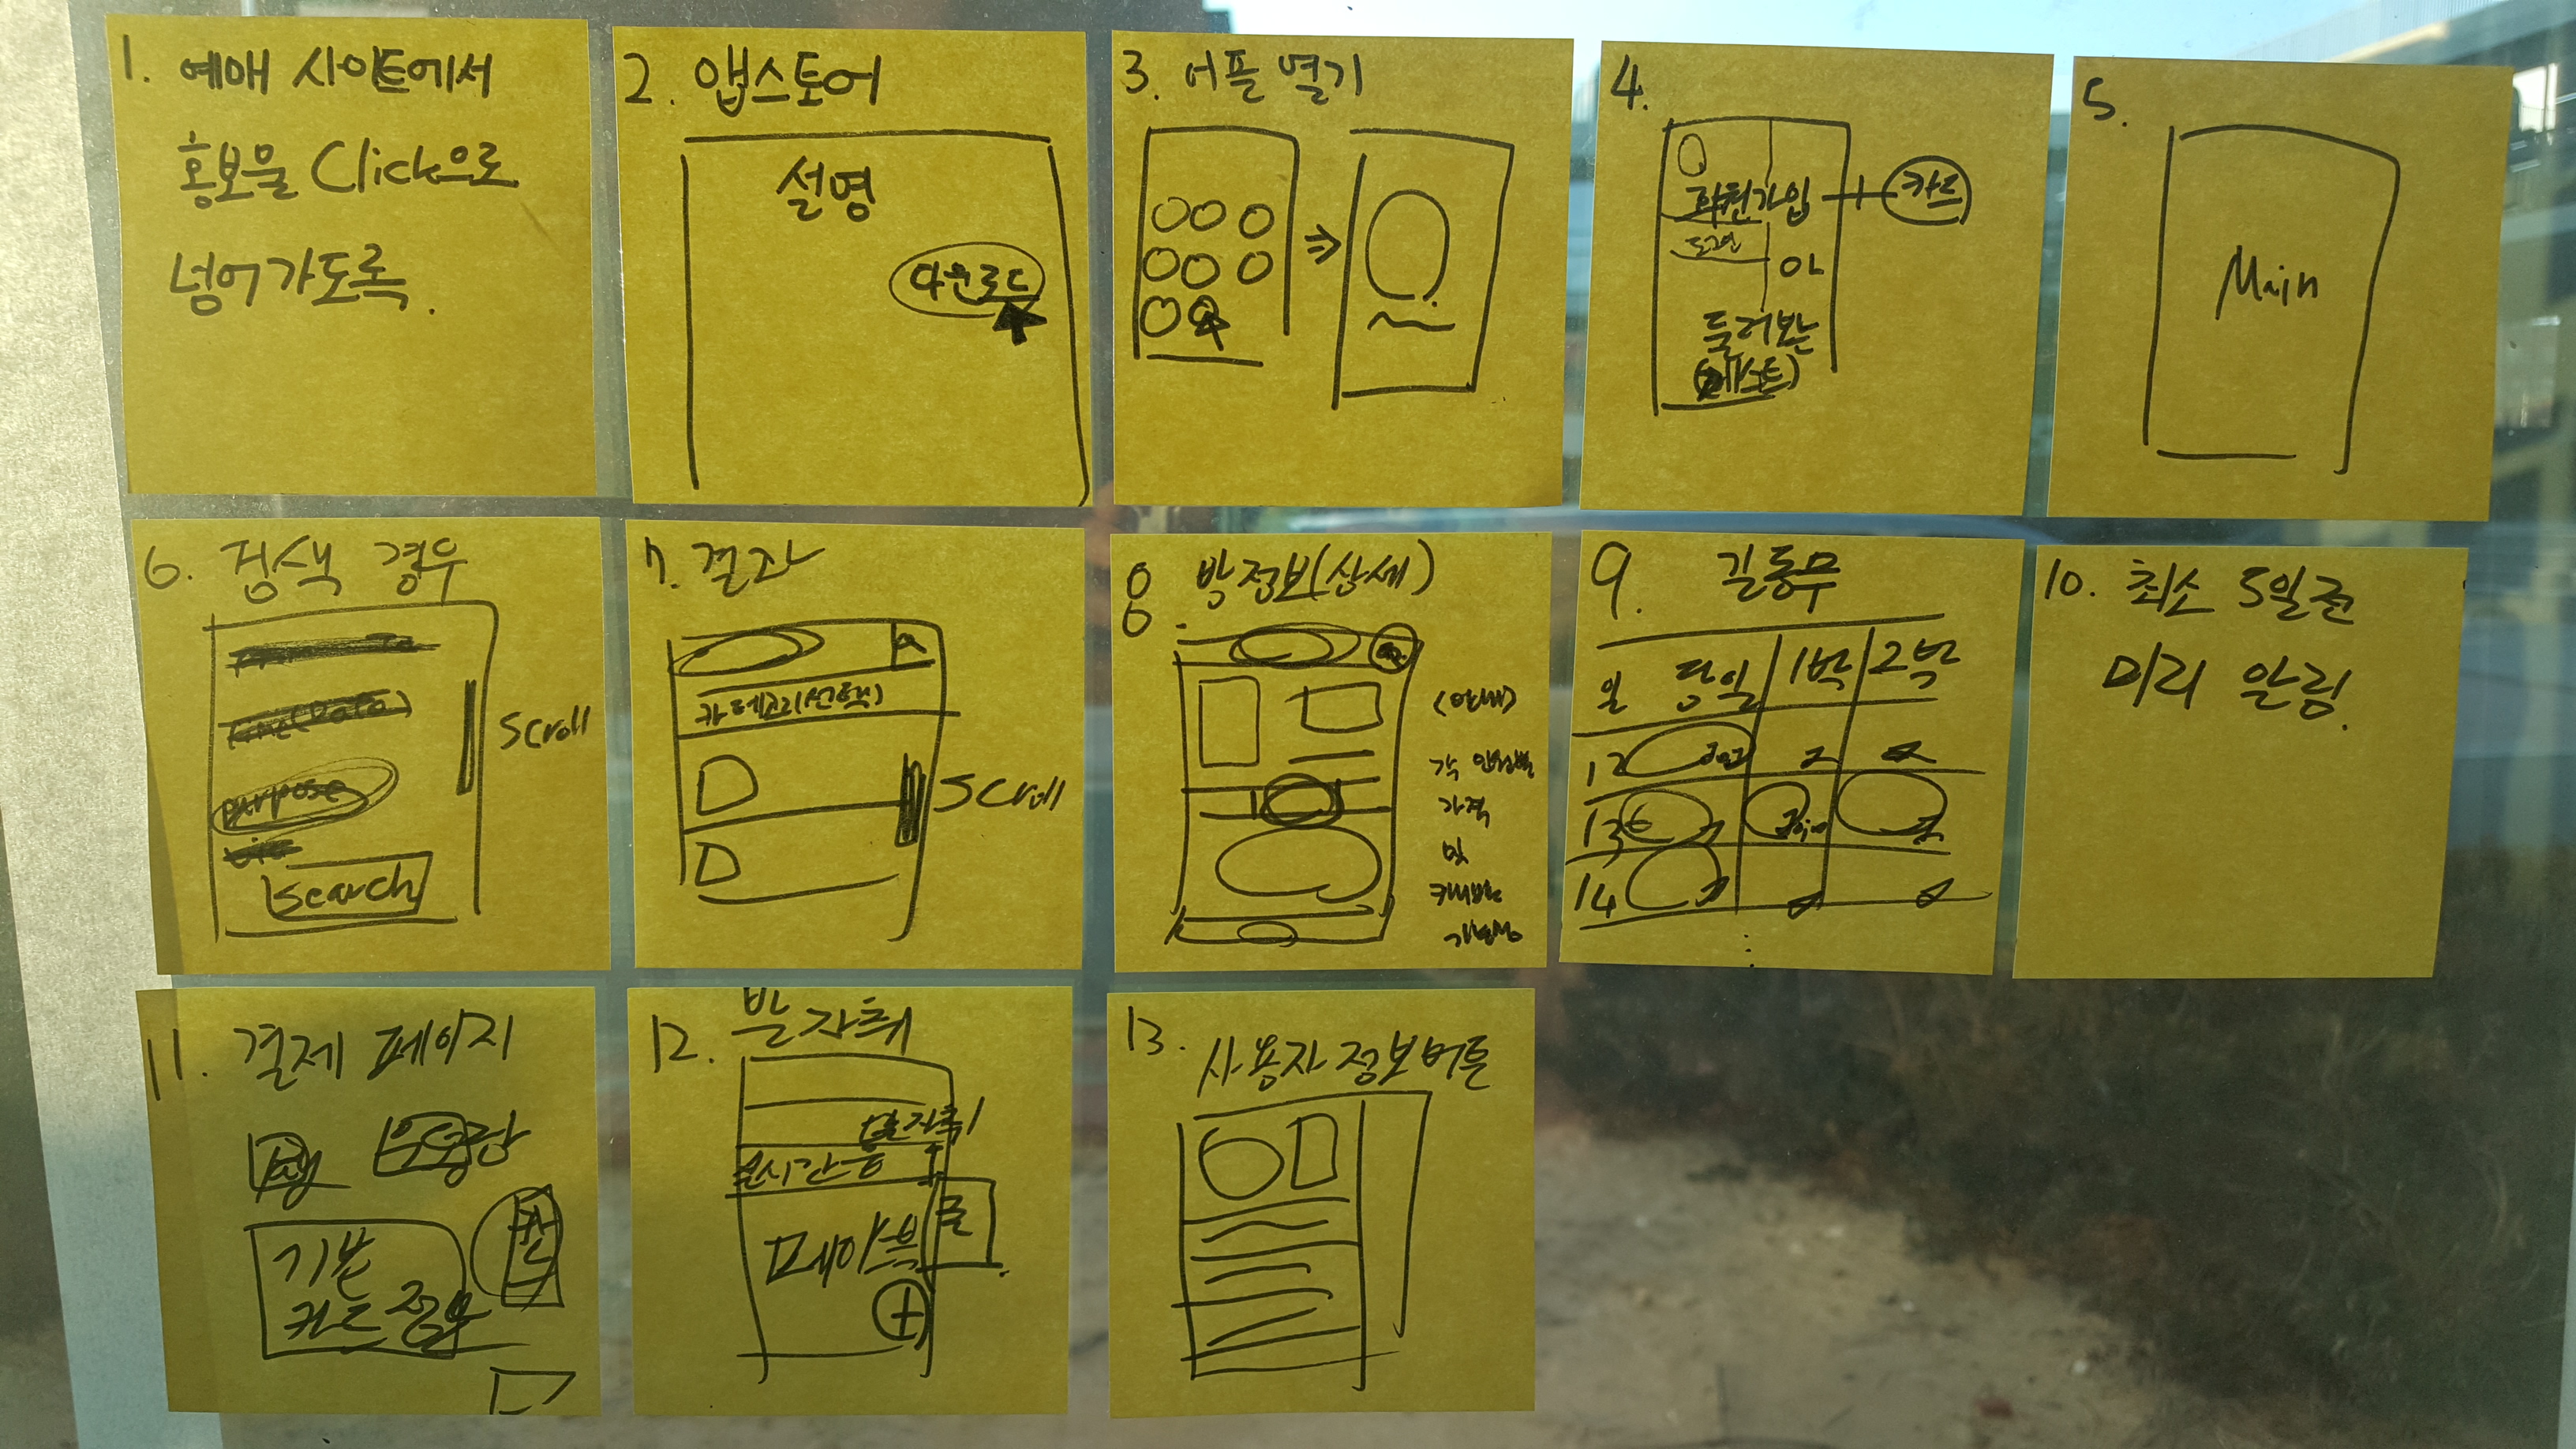 1. 예매 사이트에서
홍보물 Click으로
넘어가도록.
2. 앱스토어
설명
다운로드
3. 어플 열기
4.
회원가입
카드
로그인
둘러보는
(게스트)
5.
Main
6. 검색 경우
purpose
Scroll
Search
7. 결과
카테고리(선택)
Scroll
8. 방정보(상세)
(안내)
각 인원별
가격
및
캐비넷
가능성
9. 길동무
일 당일 1박 2박
12
13
14
10. 최소 5일전
미리 알림.
11. 결제 페이지
기본
카드 정보
12. 발자취
발자취
실시간
페이스북
13. 사용자 정보 버튼